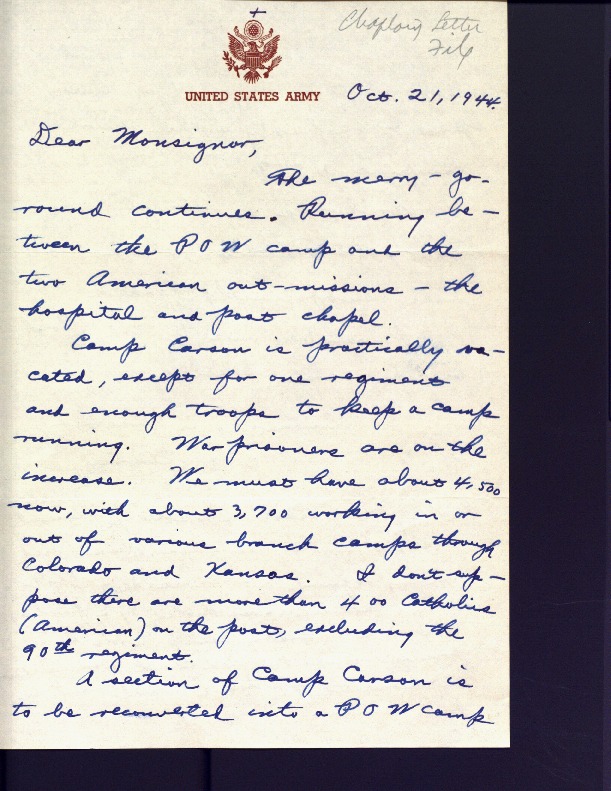 Chaplain's Letter
File
UNITED STATES ARMY
Oct. 21, 1944.
Dear Monsignor,
The merry-go-
round continues. Running be-
tween the POW camp and the
two American out-missions - the
hospital and post chapel.
Camp Carson is practically va-
cated, except for one regiment
and enough troops to keep a camp
running. War prisoners are on the
increase. We must have about 4,500
now, with about 3,700 working in or
out of various branch camps through
Colorado and Kansas. I don't sup-
pose there are more than 400 Catholics
(American) on the post, excluding the
90th regiment.
A section of Camp Carson is
to be reconverted into a POW camp